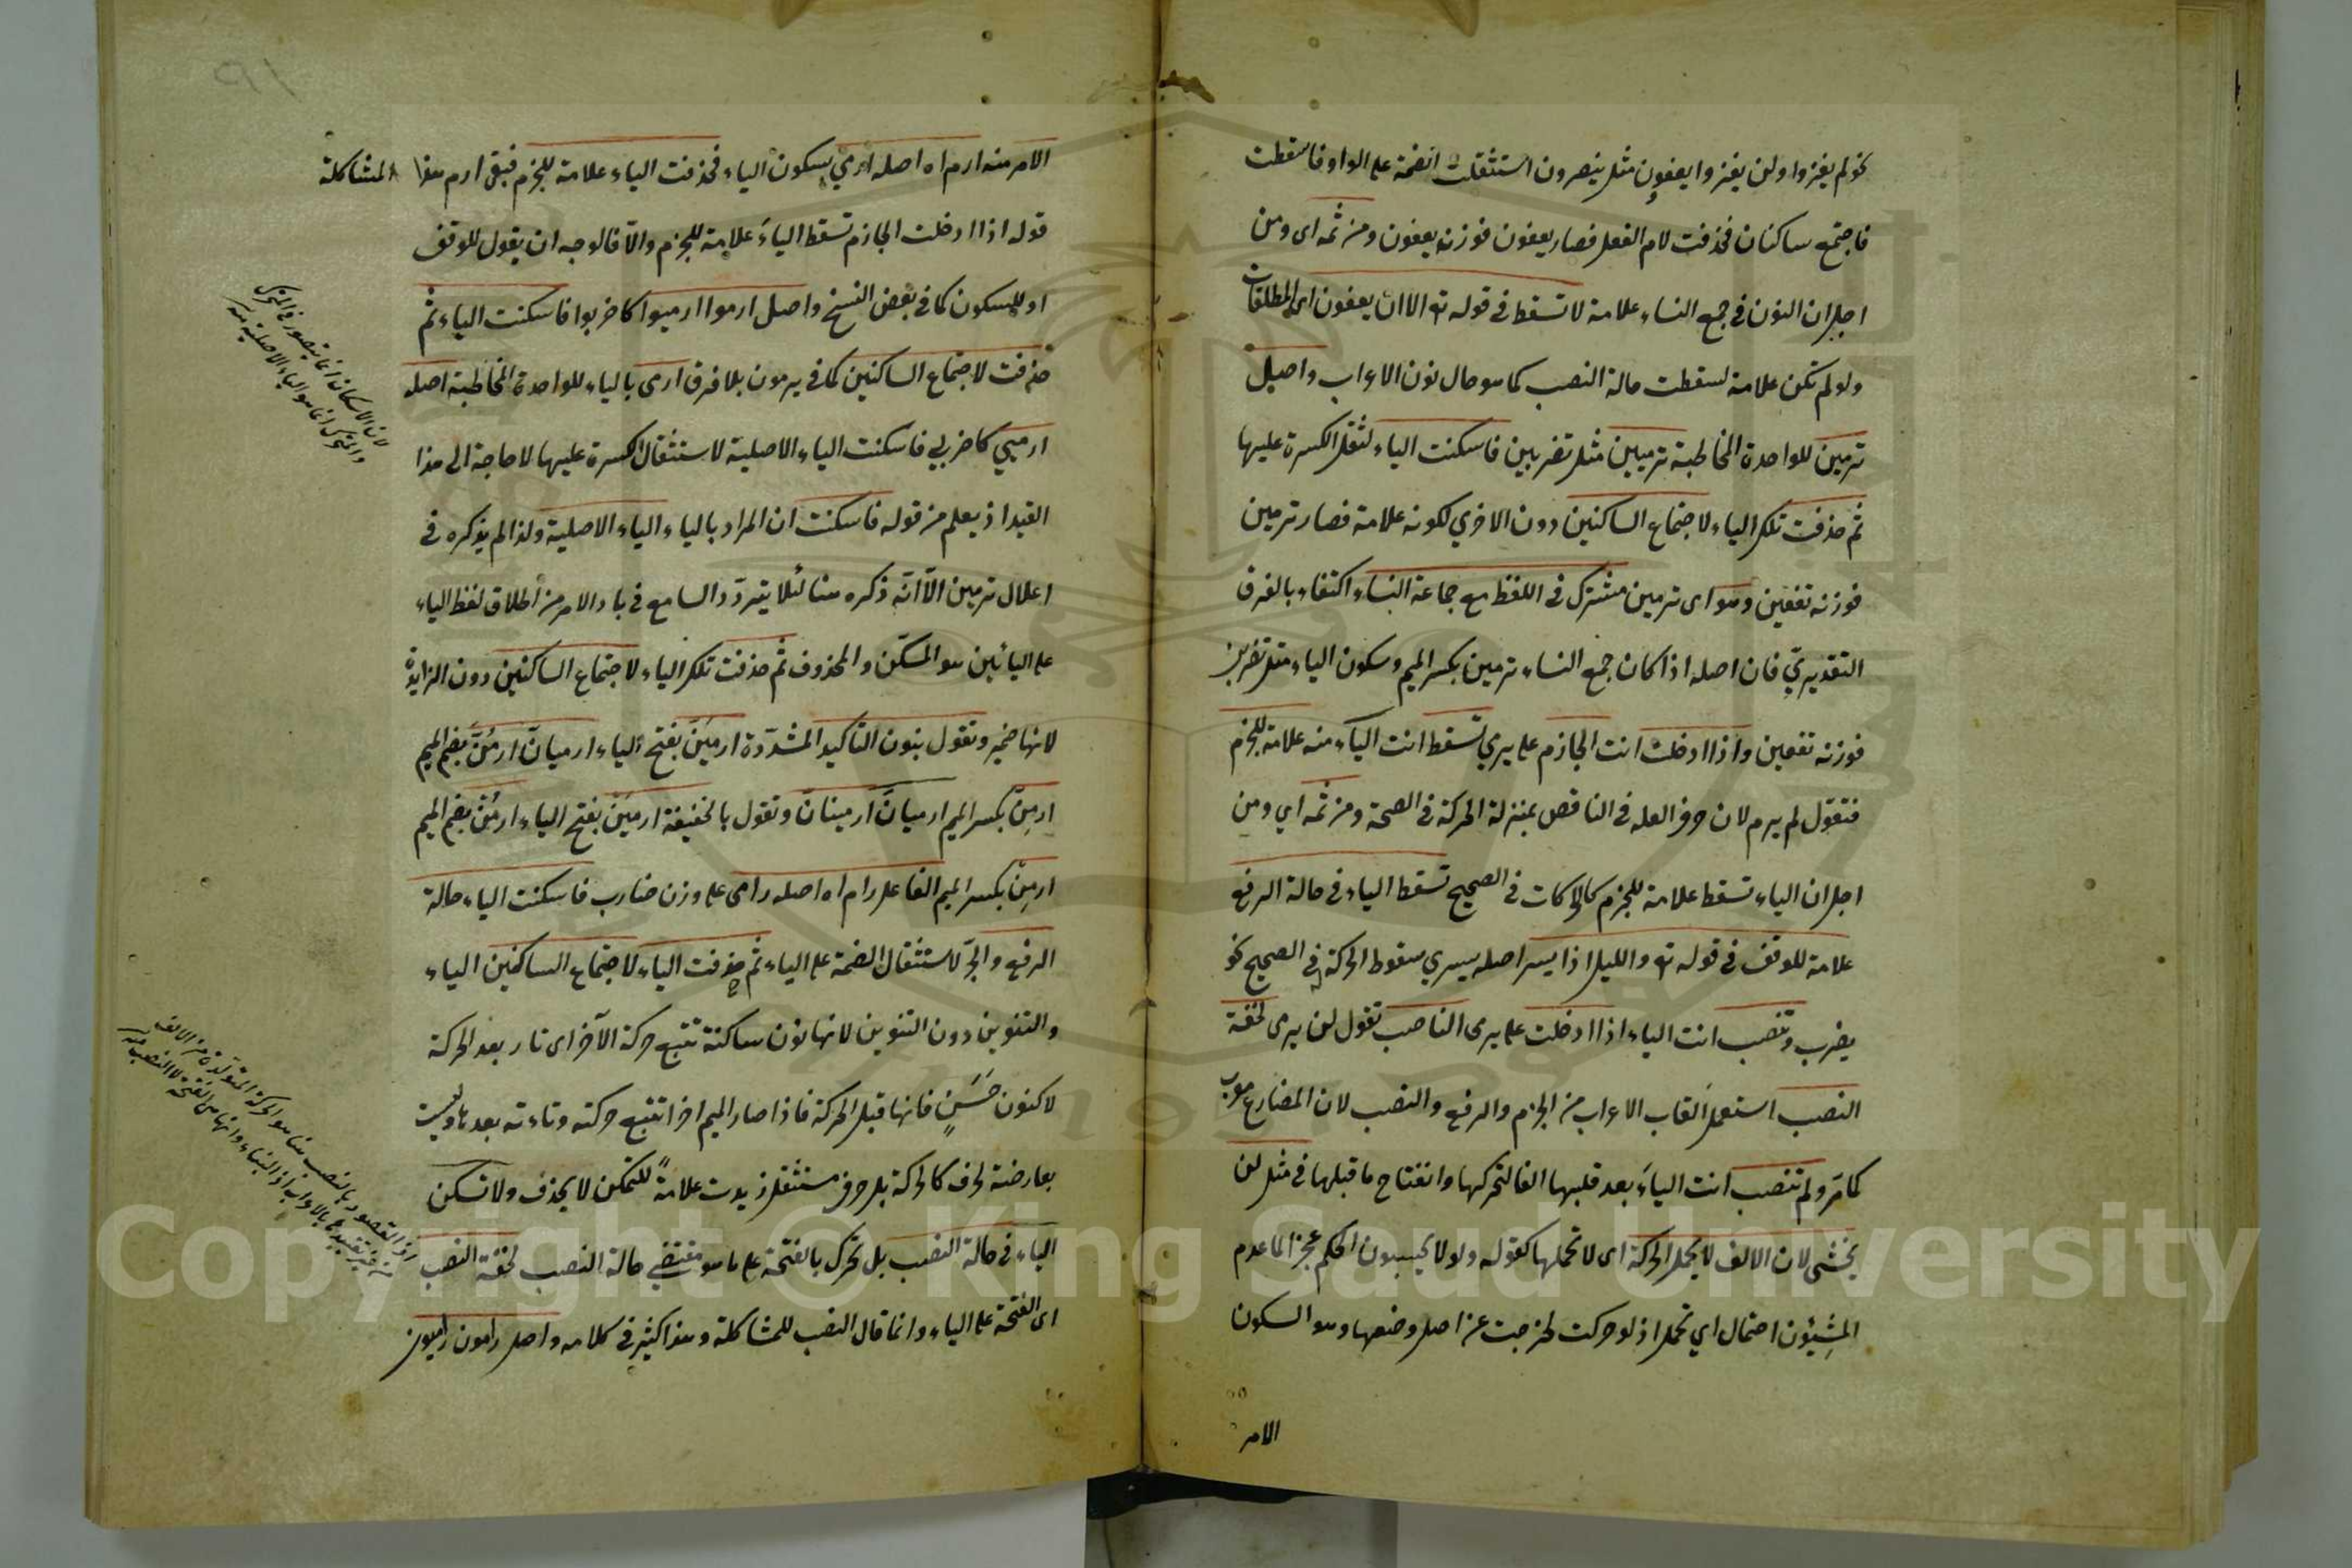 نحو لم يغزوا ولن يغزوا يعفون مثل ينصرون استثقلت الضمة على الواو فاسقطت
فاجتمع ساكنان فحذفت لام الفعل فصار يعفون فوزنه يعفون ومن ثمه اى ومن
اجل ان النون فى جمع النساء علامة لا تسقط فى قوله تع الا ان يعفون اى المطلقات
ولو لم تكن علامة لسقطت حالة النصب كما هو حال نون الاعراب واصل
ترمين للواحدة المخاطبة ترميين مثل تضربين فاسكنت الياء لثقل الكسرة عليها
ثم حذفت تلك الياء لاجتماع الساكنين دون الاخري لكونه علامة فصار ترمين
فوزنه تفعين وهو اى ترمين مشترك فى اللفظ مع جماعة النساء اكتفاء بالفرق
التقديريّ فان اصله اذا كان جمع النساء ترمين بكسر الميم وسكون الياء مثل تضربن
فوزنه تفعين واذا ادخلت انت الجازم على يرمي تسقط انت الياء منه علامة للجزم
فتقول لم يرم لان حرف العله فى الناقص بمنزلة الحركة فى الصحة ومن ثمه اي ومن
اجل ان الياء تسقط علامة للجزم كالحركات فى الصحيح تسقط الياء فى حالة الرفع
علامة للوقف فى قوله تع والليل اذا يسر اصله يسري سقوط الحركة فى الصحيح نحو
يضرب وتنصب انت الياء اذا ادخلت على يرمى الناصب تقول لن يرمى لخفة
النصب استعمل القاب الاعراب من الجزم والرفع والنصب لان المضارع معرب
كما مرّ ولم تنصب انت الياءَ بعد قلبها الفا لتحركها وانفتاح ما قبلها فى مثل لن
يخشى لان الالف لا يحمل الحركة اى لا تحملها كقوله ولو لا يحسبون الحلم عجز الما عدم
المسيئون احتمال اي تحمل اذ لو حركت لخرجت عن اصل وضعها وهو السكون
الامر
الامر منه ارم اه اصله ارمي بسكون الياء فحذفت الياء علامة للجزم فبقى ارم هذا المشاكلة
قوله اذا ادخلت الجازم تسقط الياءَ علامة للجزم والّا فالوجه ان يقول للوقف
او للسكون كما فى بعض النسخ واصل ارموا ارميوا كاضربوا فاسكنت الياء ثم
حذفت لاجتماع الساكنين كما فى يرمون بلا فرق ارمى بالياء للواحدة المخاطبة اصله
ارميي كاضربي فاسكنت الياء الاصلية لاستثقال الكسرة عليها لا حاجة الى هذا
القيد اذ يعلم من قوله فاسكنت ان المراد بالياء الياء الاصلية ولذا لم يذكره فى
اعلال ترمين الّا انّه ذكره هنا لئلا يتردّد السامع فى باد الامر من اطلاق لفظ الياء
على اليائين هو المسكّن والمحذوف ثم حذفت تلك الياء لاجتماع الساكنين دون الزايدة
لانها ضمير وتقول بنون التاكيد المشدّدة ارميَنَّ بفتح الياء ارميانّ ارمُنَّ بضم الميم
ارمِنّ بكسر الميم ارميانّ ارمينانّ وتقول بالخفيفة ارميَنْ بفتح الياء ارمُنْ بضم الميم
ارمِنْ بكسر الميم الفاعل رام اه اصله رامى على وزن ضارب فاسكنت الياء حالة
الرفع والجرّ لاستثقال الضمة على الياء ثم حذفت الياء لاجتماع الساكنين الياء
والتنوين دون التنوين لانها نون ساكنة تتبع حركة الآخر اى تار بعد الحركة
لا كنون حَسَنٍ فانها قبل الحركة فاذا صار الميم اخرا تتبع حركته وتاءته بعدها وليست
بعارضة لحرف كالحركة بل حرف مستثقل زيدت علامةً للتمكن لا يحذف ولا تسكن
الياء فى حالة النصب بل تحرك بالفتحة على ما هو مقتضى حالة النصب لخفّة النصب
اى الفتحة على الياء وانما قال النصب للمشاكلة وهذا كثير فى كلامه واصل رامون راميون
لان الاسكان انما يتصور فى المتحرك
والمتحرك انما هو الياء الاصلية منه